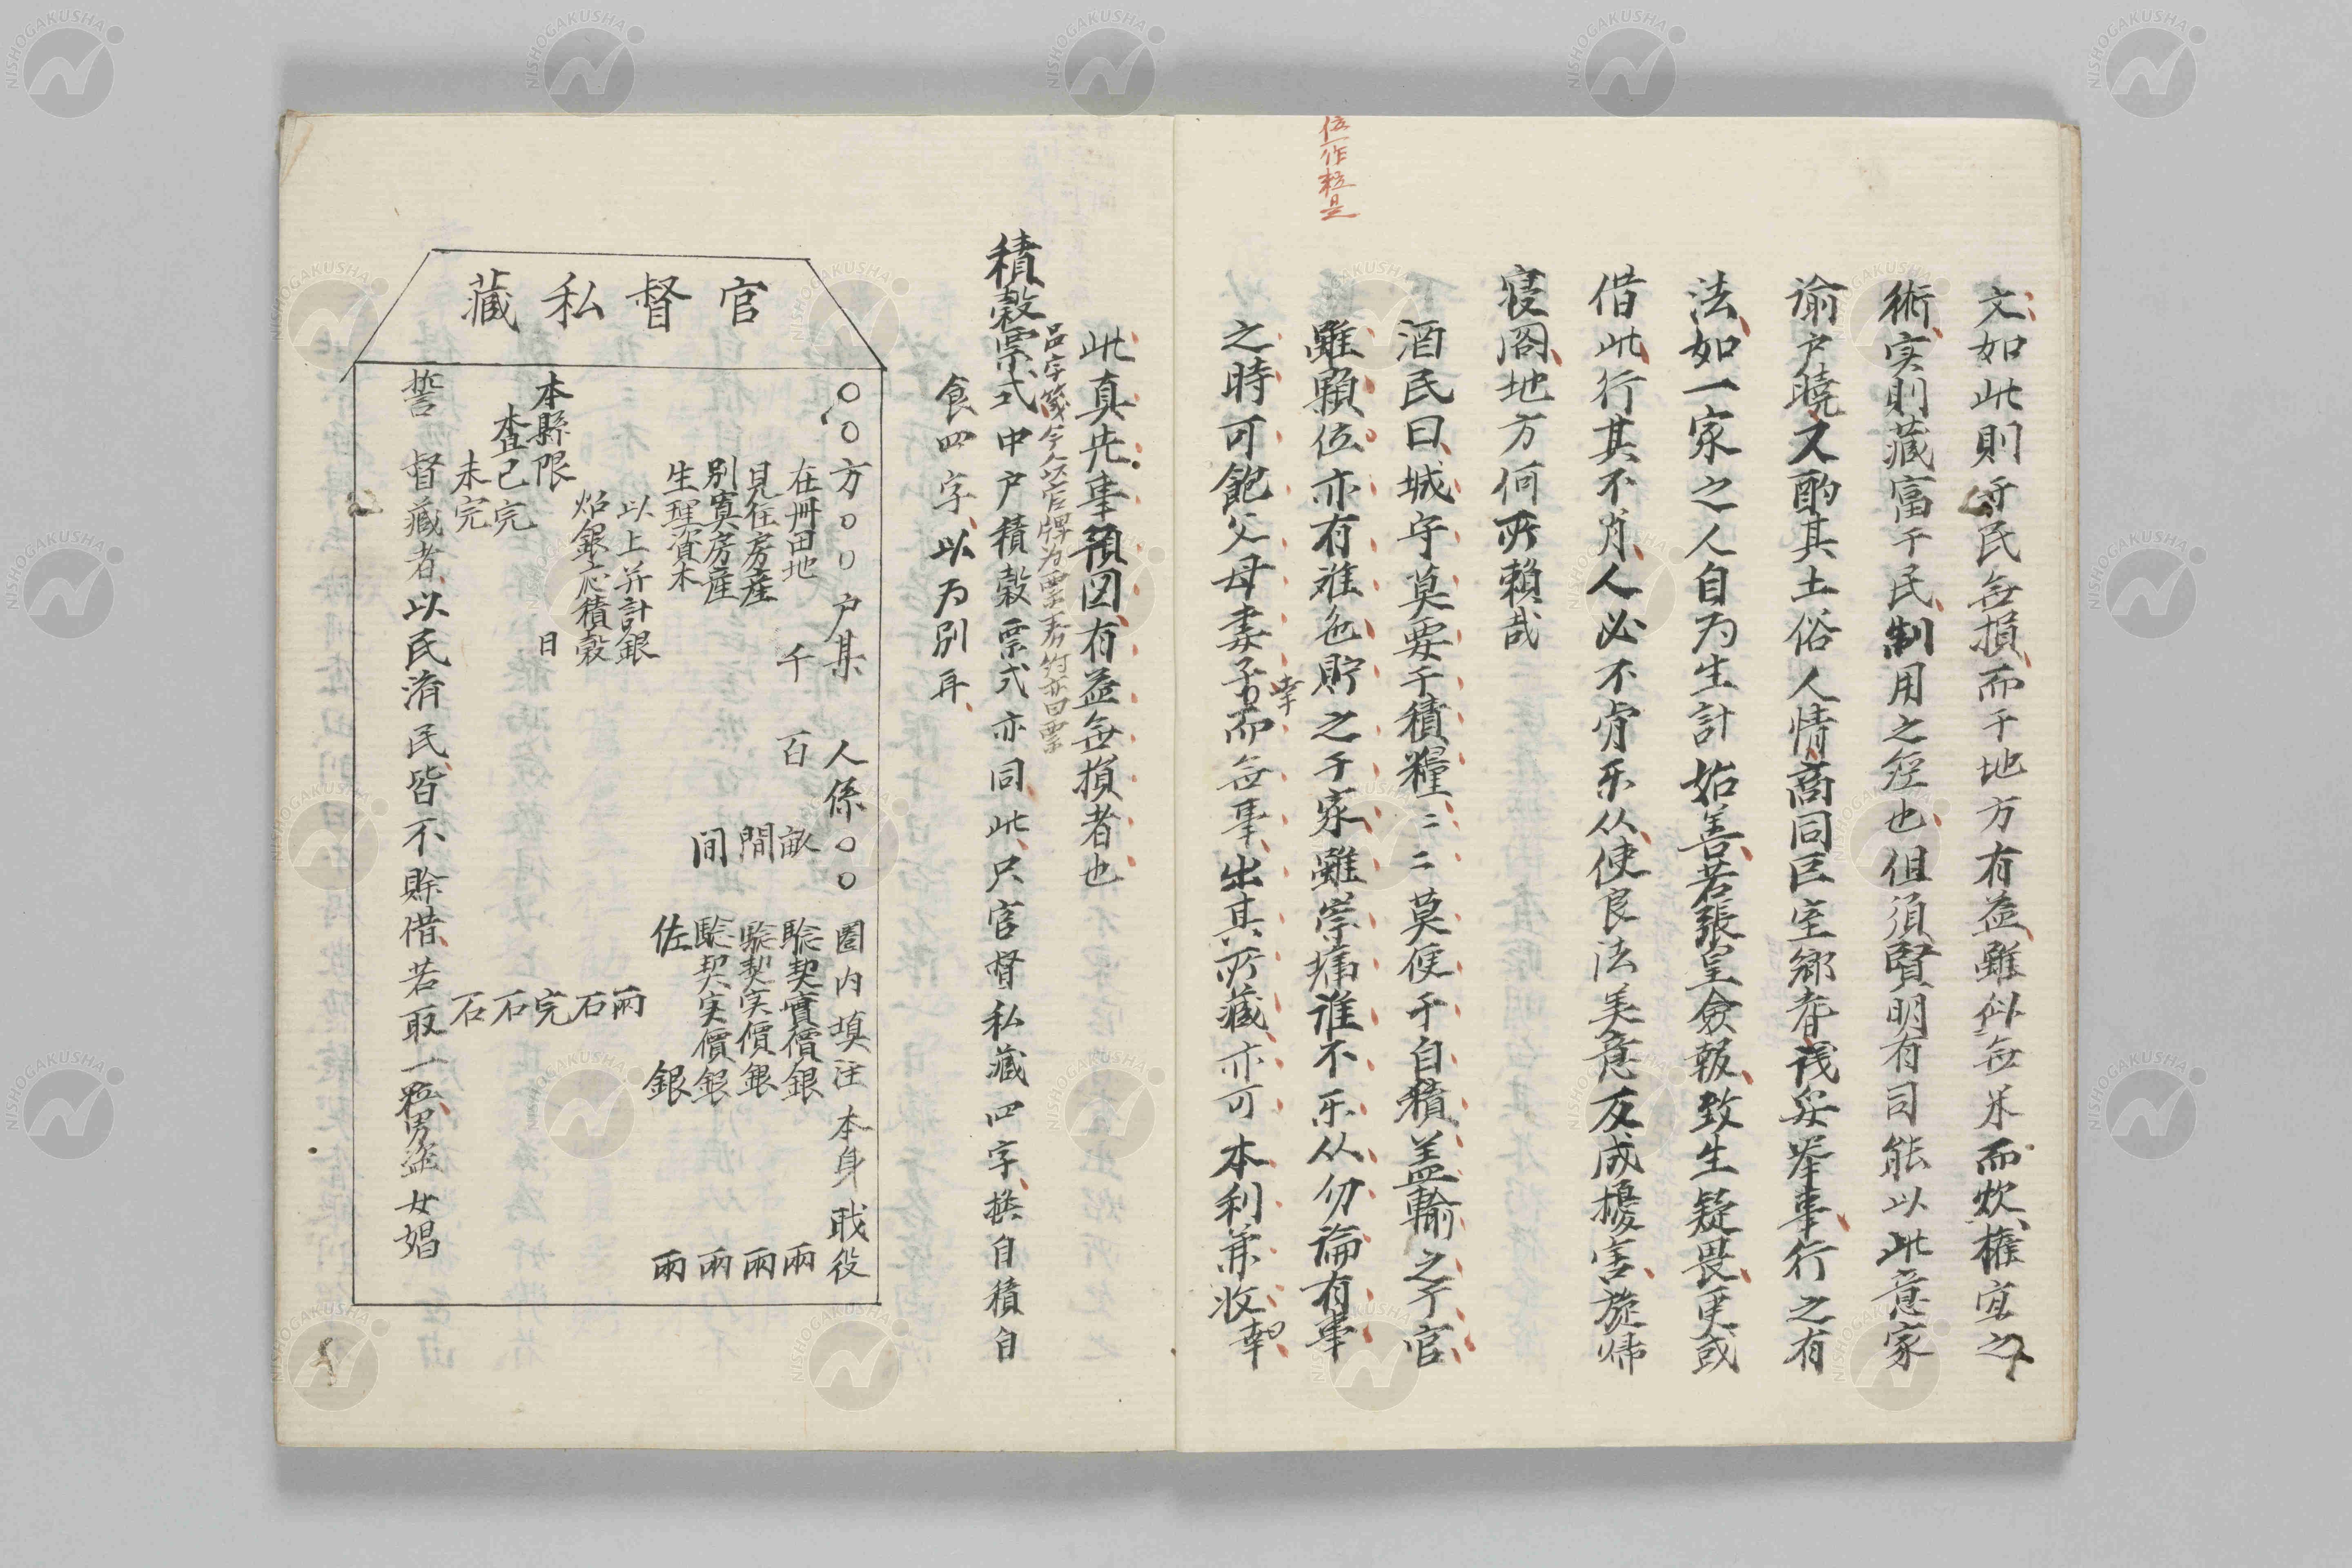 位一作粒是
文如此則于民無損而于地方有益雖似無米而炊権宜之
術実則藏富于民制用之經也但須賢明有司能以此意家
諭户曉又酌其土俗人情商同巨室鄉耆議妥举事行之有
法如一家之人自为生計始善若張皇僉報致生疑畏更或
借此行其不肖人必不肯乐从使良法美意反成擾害旋帰
寝阁地方何所賴哉
酒民曰城守莫要于積糧〻〻莫便于自積盖輸之于官
雖顆位亦有难色貯之于家雖崇墉谁不乐从勿論有事
之時可飽父母妻子而無事出其所藏亦可本利兼收幸
幸
此真先事預図有益無損者也
品字箋今人以官牌为票券竹亦曰票
積穀票式中户積穀票式亦同此只官督私藏四字換自積自
食四字以为别耳
官督私藏
〇〇方〇〇户某 人係〇〇 圈内填注本身戢役
在冊田地 千 百 畝 驗契實價銀 兩
見住房産 間 驗契实價銀 兩
别寘房産 间 驗契实價銀 兩
生理資本 佐 銀 兩
以上并計銀 兩
炤銀应積穀 石
本縣限 日 完
查已完 石
未完 石
誓 督藏者以民済民皆不賒借若取一粒男盗女娼
NISHOGAKUSHA